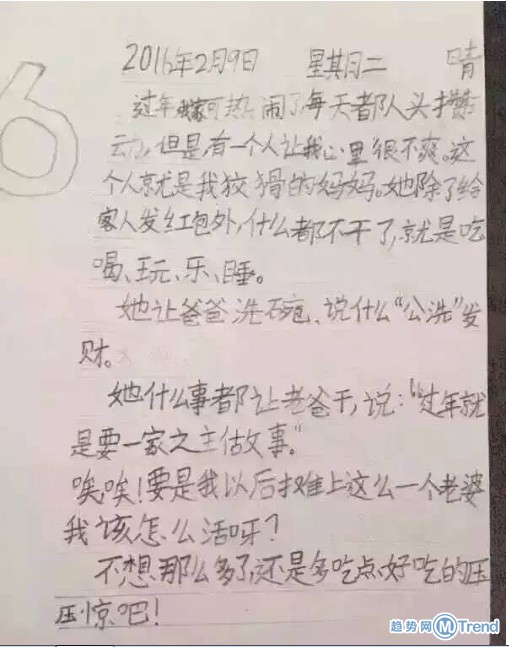 6
2016年2月9日 星期二 晴
过年我家可热闹了,每天都人头攒
动,但是,有一个人让我心里很不爽。这
个人就是我狡猾的妈妈。她除了给
客人发红包外,什么都不干了,就是吃
喝、玩、乐、睡。
她让爸爸洗碗、说什么“公洗”发
财。
她什么事都让老爸干,说:“过年就
是要一家之主做事。”
唉,唉!要是我以后摊上这么一个老婆
我该怎么活呀?
不想那么多了,还是多吃点好吃的压
压惊吧!
趋势网 Trend